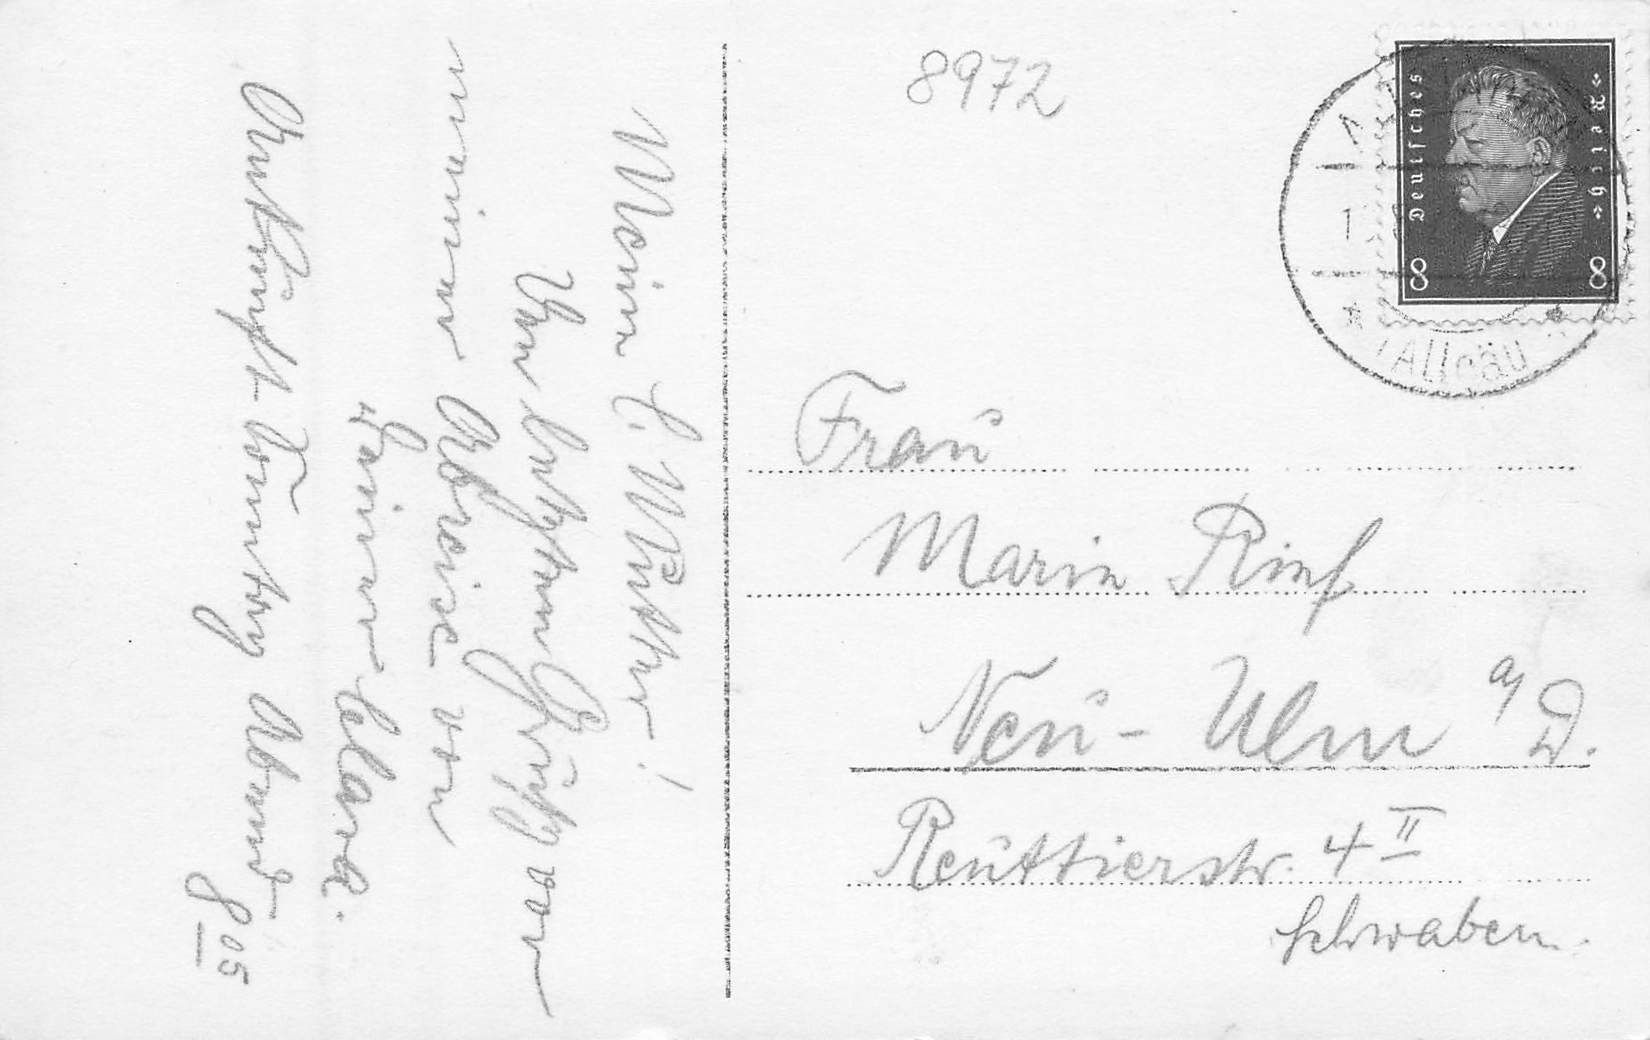 Mein l. Mutter!
Den letzten Gruß vor
meiner Abreise von
Deiner Clara.
Ankunft Sonntag Abend
8 05
8972
Deutsches Reich
8 8
(Allgäu)
Frau
Maria Rief
Neu-Ulm a/D.
Reuttierstr. 4 II
Schwaben.